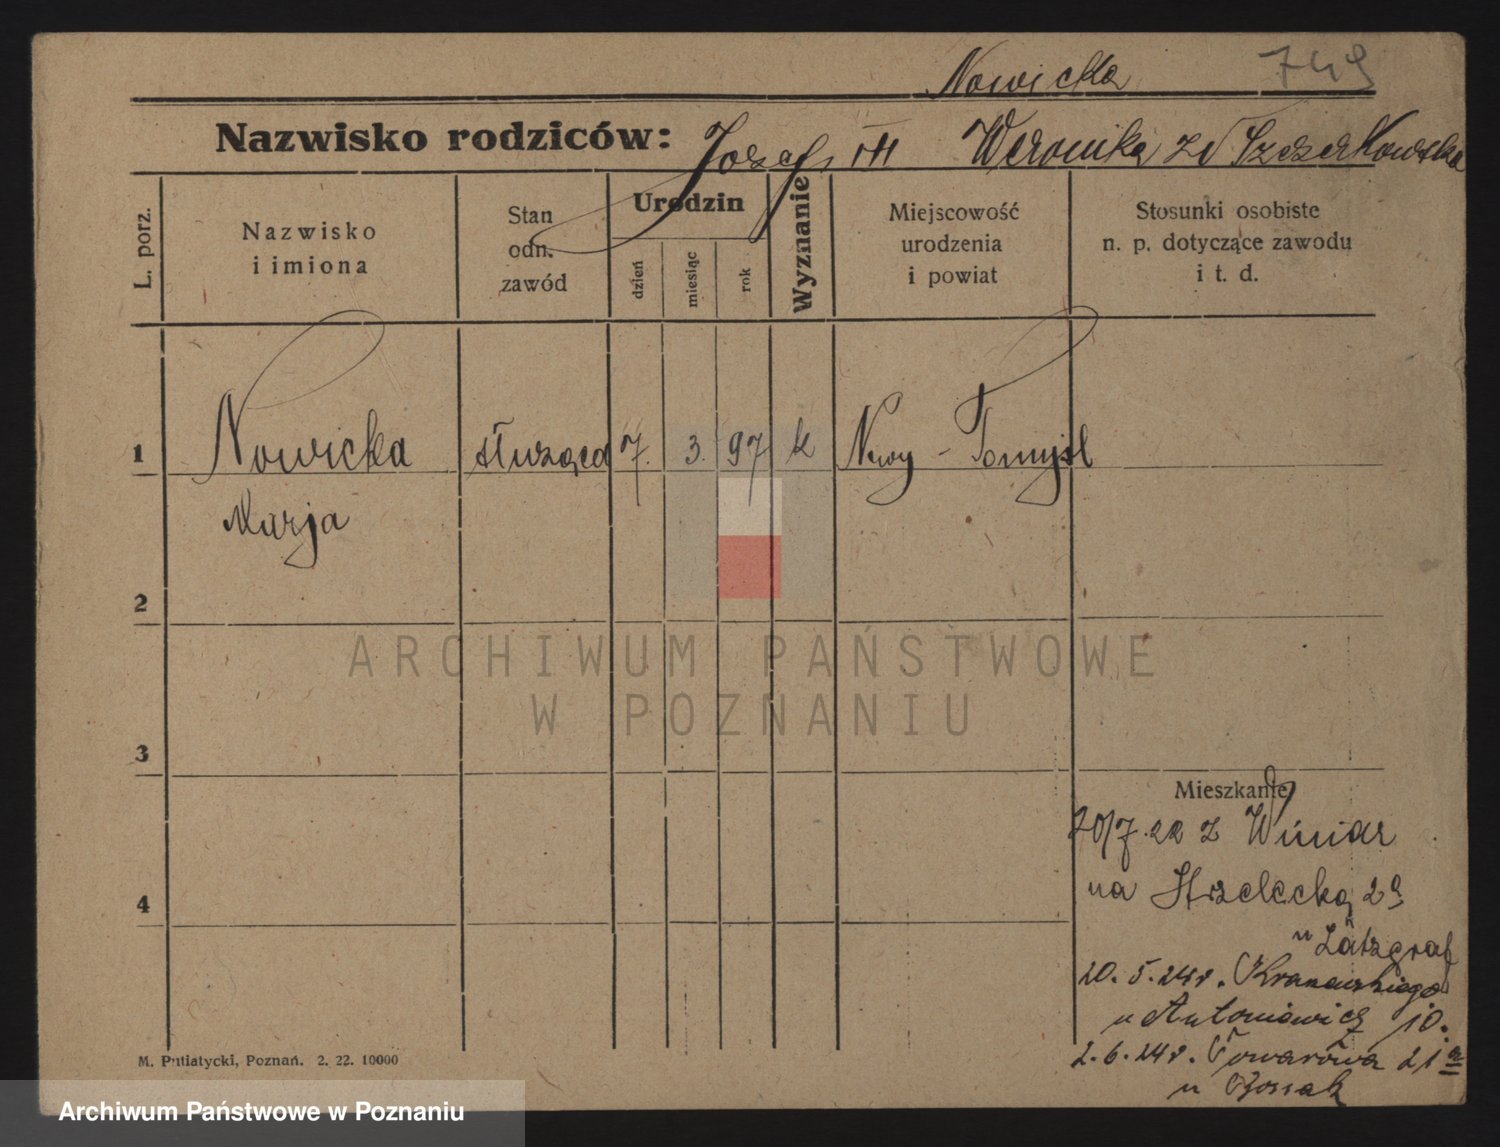 Nowicka 749
Nazwisko rodziców: Józef i Weronika z d. Szczerkowska
L. porz.
Nazwisko
i imiona
Stan
odn.
zawód
Urodzin
dzień
miesiąc
rok
Wyznanie
Miejscowość
urodzenia
i powiat
Stosunki osobiste
n. p. dotyczące zawodu
i t. d.
1 Nowicka służąca 7. 3. 97 k Nowy-Tomyśl
Marja
2
3
4
Mieszkanie
20/7.22 z Winiar
na Strzelecką 29
u
20.5.24r.
u Antoniewicz 10.
2.6.24r. Towarowa 21a
u
M. Putiatycki, Poznań. 2. 22. 10000
ARCHIWUM PAŃSTWOWE
W POZNANIU
Archiwum Państwowe w Poznaniu